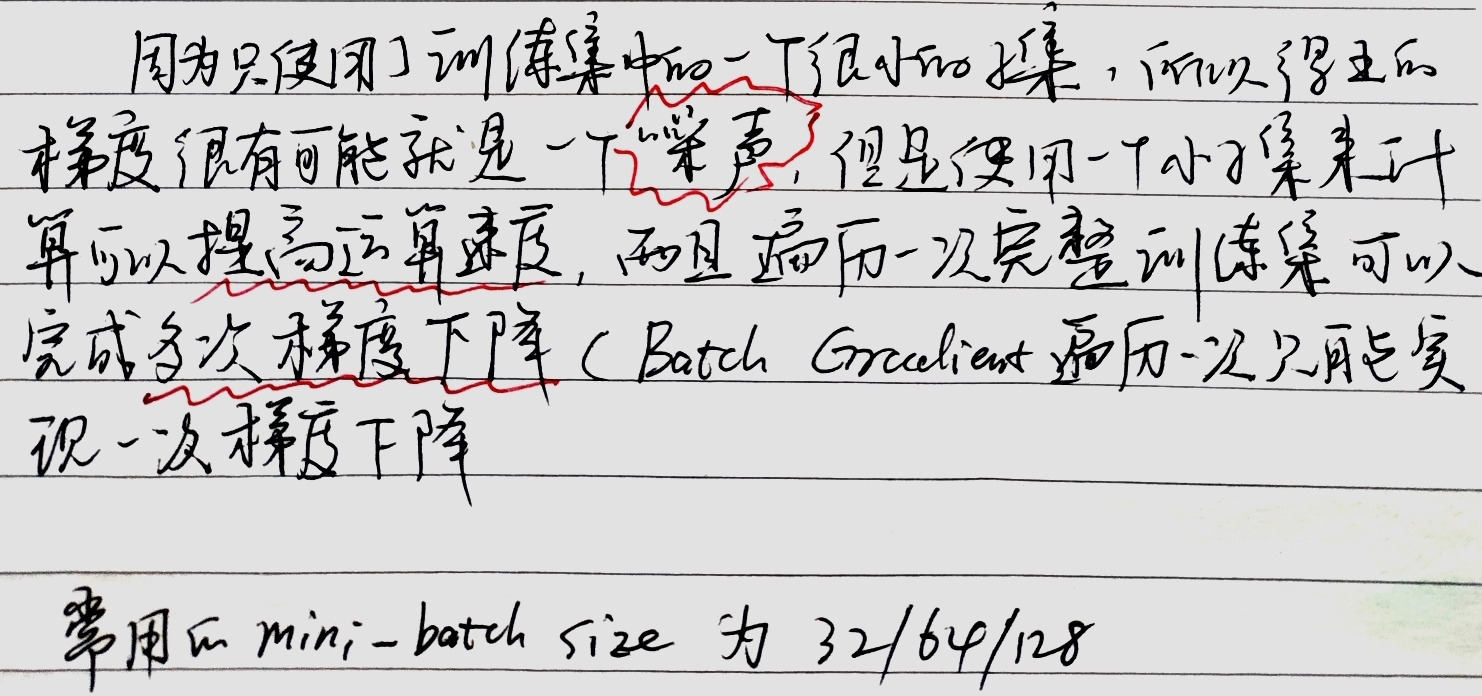 因为只使用了训练集中的一个很小的子集，所以得出的
梯度很有可能就是一个噪声，但是使用一个小子集来计
算可以提高运算速度，而且遍历一次完整训练集可以
完成多次梯度下降（Batch Gradient 遍历一次只能实
现一次梯度下降
常用的 mini-batch size 为 32/64/128